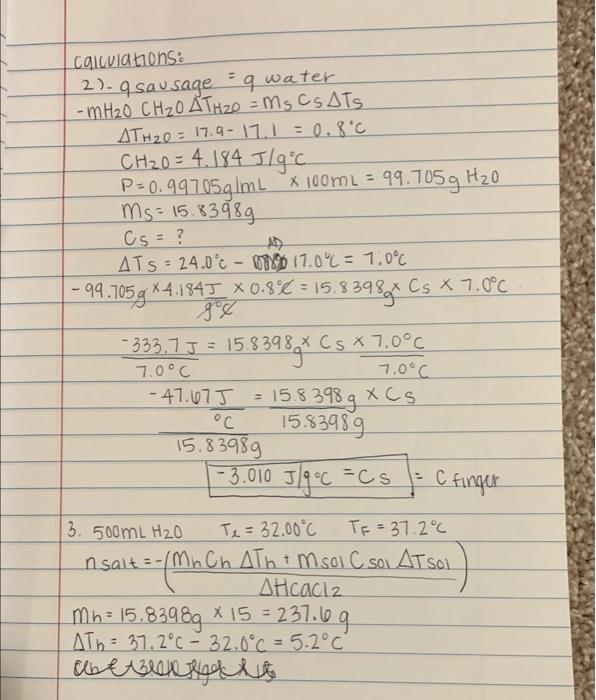 calculations:
2). - q sausage = q water
- mH2O CH2O ΔTH2O = ms Cs ΔTs
ΔTH2O = 17.9 - 17.1 = 0.8°C
CH2O = 4.184 J/g°C
P = 0.99705g/mL × 100mL = 99.705g H2O
ms = 15.8398g
Cs = ?
ΔTs = 24.0°C - 17.0°C = 7.0°C
- 99.705g × 4.184J/g°C × 0.8°C = 15.8398g × Cs × 7.0°C
-333.7 J = 15.8398g × Cs × 7.0°C
7.0°C 7.0°C
-47.67 J = 15.8398g × Cs
°C 15.8398g
15.8398g
-3.010 J/g°C = Cs = C finger
3. 500mL H2O Ti = 32.00°C TF = 37.2°C
nsalt = -(mh Ch ΔTh + msol Csol ΔTsol)
ΔHCaCl2
mh = 15.8398g × 15 = 237.6g
ΔTh = 37.2°C - 32.0°C = 5.2°C